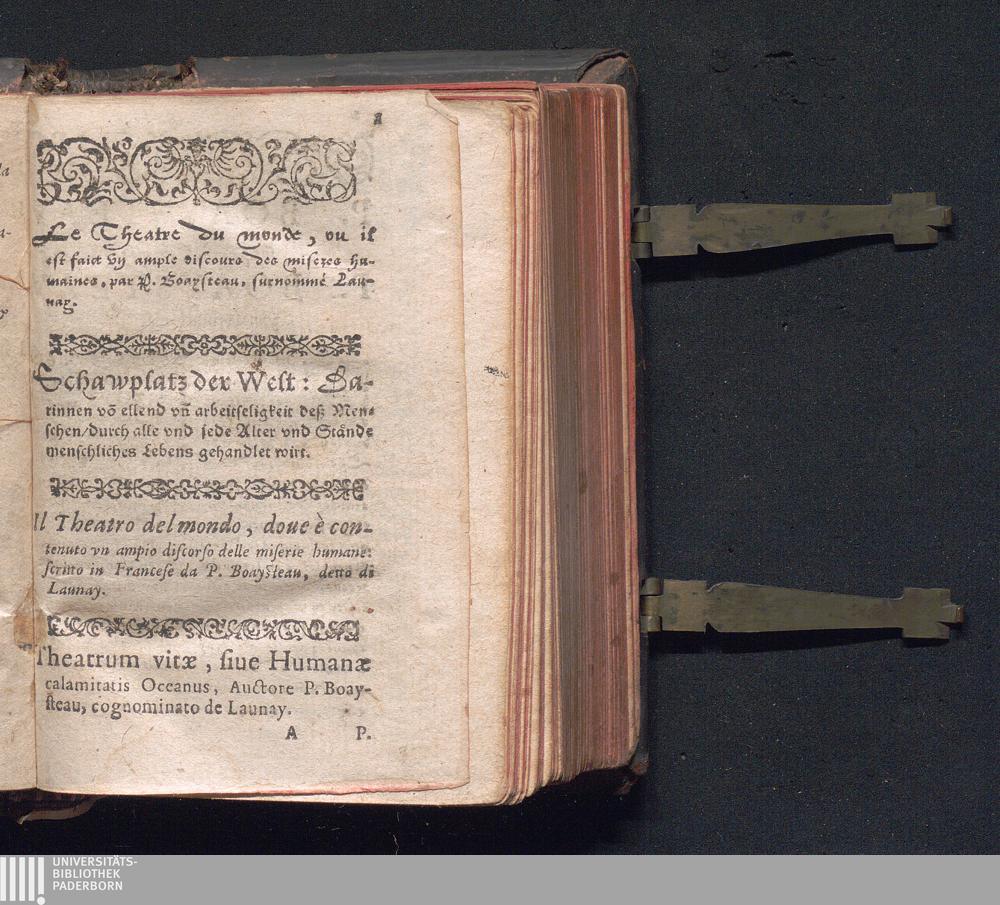 1
Le Theatre du monde, ou il
est faict vn ample discours des miseres hu-
maines, par P. Boaysteau, surnommé Lau-
nay.
Schawplatz der Welt: Da-
rinnen võ ellend vñ arbeitseligkeit deß Men-
schen/durch alle vnd jede Alter vnd Stånde
menschliches Lebens gehandlet wirt.
Il Theatro del mondo, doue è con-
tenuto vn ampio discorso delle miserie humane:
scritto in Francese da P. Boaysteau, detto di
Launay.
Theatrum vitæ, siue Humanæ
calamitatis Oceanus, Auctore P. Boay-
steau, cognominato de Launay.
A P.
UNIVERSITÄTS-
BIBLIOTHEK
PADERBORN